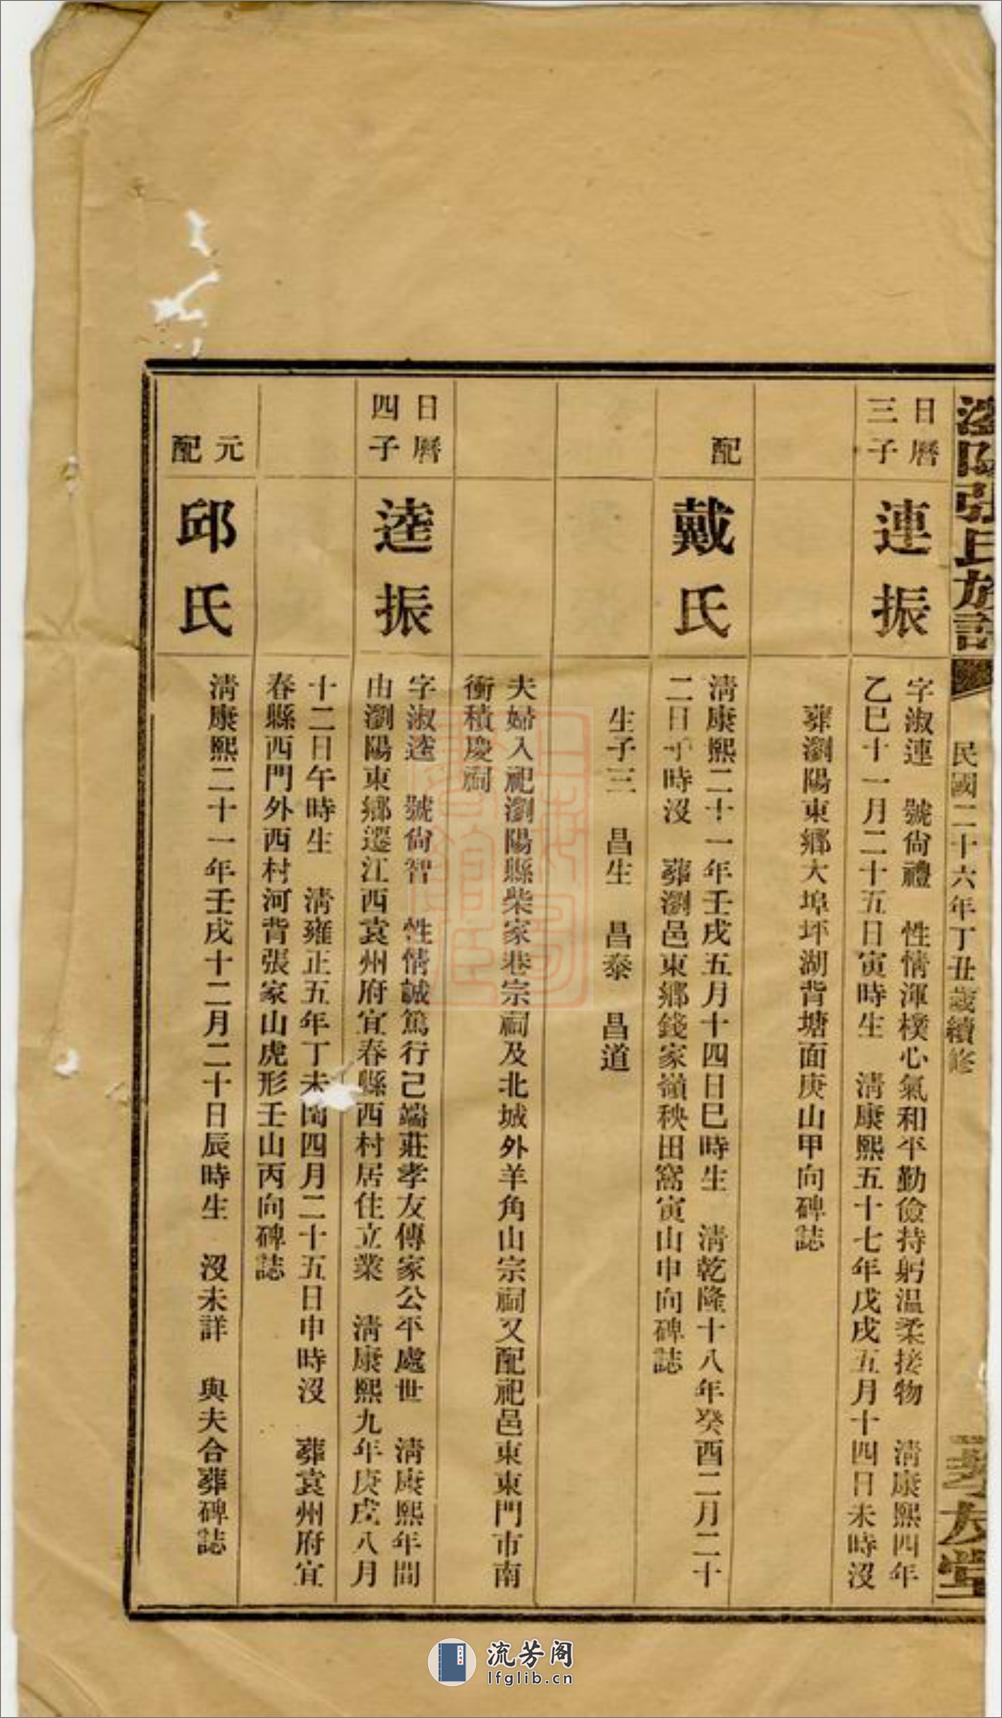 瀏陽張氏族譜
民國二十六年丁丑歲續修
孝友堂
日曆三子
連振
字淑連 號尙禮 性情渾樸心氣和平勤儉持躬温柔接物 淸康熙四年
乙巳十一月二十五日寅時生 淸康熙五十七年戊戌五月十四日未時沒
葬瀏陽東鄉大埠坪湖背塘面庚山甲向碑誌
配
戴氏
淸康熙二十一年壬戌五月十四日巳時生 淸乾隆十八年癸酉二月二十
二日子時沒 葬瀏邑東鄉錢家嶺秧田窩寅山申向碑誌
生子三 昌生 昌泰 昌道
夫婦入祀瀏陽縣柴家巷宗祠及北城外羊角山宗祠又配祀邑東東門市南
衝積慶祠
日曆四子
逵振
字淑逵 號尙智 性情誠篤行己端莊孝友傳家公平處世 淸康熙年間
由瀏陽東鄉遷江西袁州府宜春縣西村居住立業 淸康熙九年庚戌八月
十二日午時生 淸雍正五年丁未閏四月二十五日申時沒 葬袁州府宜
春縣西門外西村河背張家山虎形壬山丙向碑誌
元配
邱氏
淸康熙二十一年壬戌十二月二十日辰時生 沒未詳 與夫合葬碑誌
流芳阁
lfglib.cn